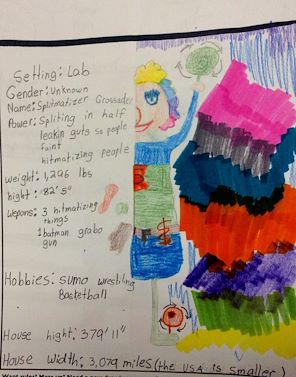 Setting: Lab
Gender: Unknown
Name: Splitmatizer Grossader
Power: Spliting in half
leakin guts so people
faint
hitmatizing people
weight: 1,296 lbs
hight: 82' 5"
Wepons: 3 hitmatizing
things
1 batman grabo
gun
Hobbies: sumo wrestling
Basketball
House hight: 379' 11"
House width: 3,079 miles (the USA is smaller)